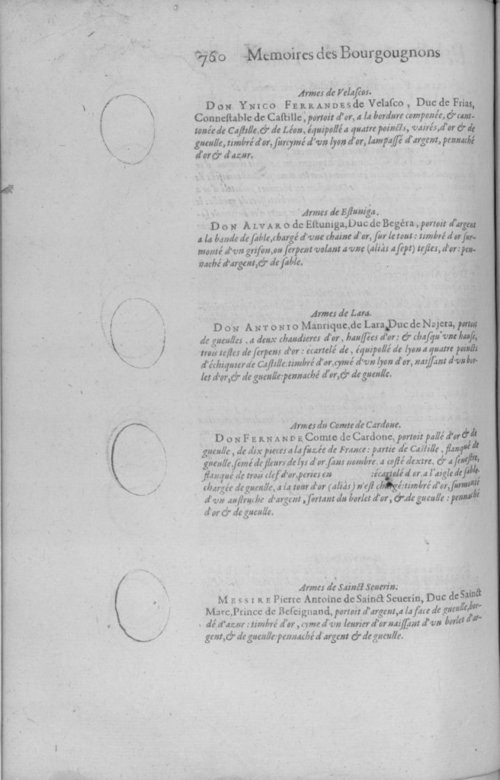 760 Memoires des Bourgougnons
Armes de Velaſcos.
DON YNICO FERRANDES de Velaſco, Duc de Frias,
Conneſtable de Caſtille, portoit d'or, a la bordure componée, & can-
tonée de Caſtille, & de Léon, équipollé a quatre poincts, vairés, d'or & de
gueulle, timbré d'or, ſurcymé d'vn lyon d'or, lampaſſé d'argent, pennaché
d'or & d'azur.
Armes de Eſtuniga.
DON ALVARO de Eſtuniga, Duc de Begéra, portoit d'argent
a la bande de ſable, chargé d'vne chaine d'or, ſur le tout: timbré d'or ſur-
monté d'vn grifon, ou ſerpent volant a vne (aliàs a ſept) teſtes, d'or: pen-
naché d'argent, & de ſable.
Armes de Lara.
DON ANTONIO Manrique, de Lara, Duc de Najera, portoit
de gueulles, a deux chaudieres d'or, hauſſées d'or: & chaſqu'vne hauſſe,
trois teſtes de ſerpens d'or: écartelé de, équipollé de lyon a quatre poincts
d'échiquier de Caſtille: timbré d'or, cymé d'vn lyon d'or, naiſſant d'vn bo-
let d'or, & de gueulle: pennaché d'or, & de gueulle.
Armes du Comte de Cardone.
DON FERNANDE Comte de Cardone, portoit pallé d'or & de
gueulle, de dix pieces a la fuzée de France: partie de Caſtille, flanqué de
gueulle, ſemé de fleurs de lys d'or ſans nombre a coſté dextre, & a ſeneſtre,
flanqué de trois clef d'or, peries en :écartelé d'or, a l'aigle de ſable,
chargée de gueulle, a la tour d'or (aliàs) n'eſt chargé: timbré d'or, ſurmonté
d'vn auſtruche d'argent, ſortant du borlet d'or, & de gueulle: pennaché
d'or & de gueulle.
Armes de Sainct Seuerin.
MESSIRE Pierre Antoine de Sainct Seuerin, Duc de Sainct
Marc, Prince de Beſeignand, portoit d'argent, a la face de gueulle, bor-
dé d'azur: timbré d'or, cyme d'vn leurier d'or naiſſant d'vn borlet d'ar-
gent, & de gueulle: pennaché d'argent & de gueulle.